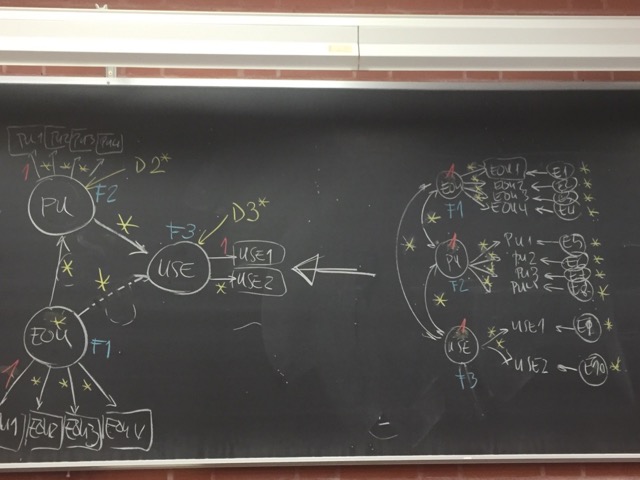 PU1 PU2 PU3 PU4
1 * * *
D2*
PU
F2
*
D3*
F3
USE
1 USE1
* USE2
*
*
EOU
*
F1
1 * * *
EOU2 EOU3 EOU4
1
EOU
F1
EOU1 E1 *
EOU2 E2 *
EOU3 E3 *
EOU4 E4 *
*
*
1
PU
F2
PU1 E5 *
PU2 E6 *
PU3 E7 *
PU4 E8 *
*
1
USE
F3
* USE1 E9 *
* USE2 E10 *